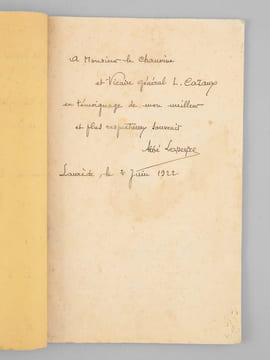 A Monsieur le Chanoine
et Vicaire général L. Cazaux
en témoignage de mon meilleur
et plus respectueux souvenir
Abbé Lapeyre
Laurède, le 7 Juin 1922